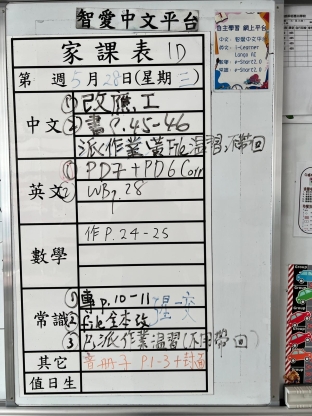 智愛中文平台
家課表 1D
第 週 5月28日(星期三)
中文
① 改應工
② 書 P.45-46
派作業簿File溫習,不帶回
英文
① PD7+PD6 Corr
② WB p.28
數學
作 P.24-25
常識
① 專 p.10-11
② File 全本改
③ 已派作業溫習(不用帶回)
其它
音冊子 P1-3+封面
值日生
自主學習 網上平台
中文: 智愛中文平台